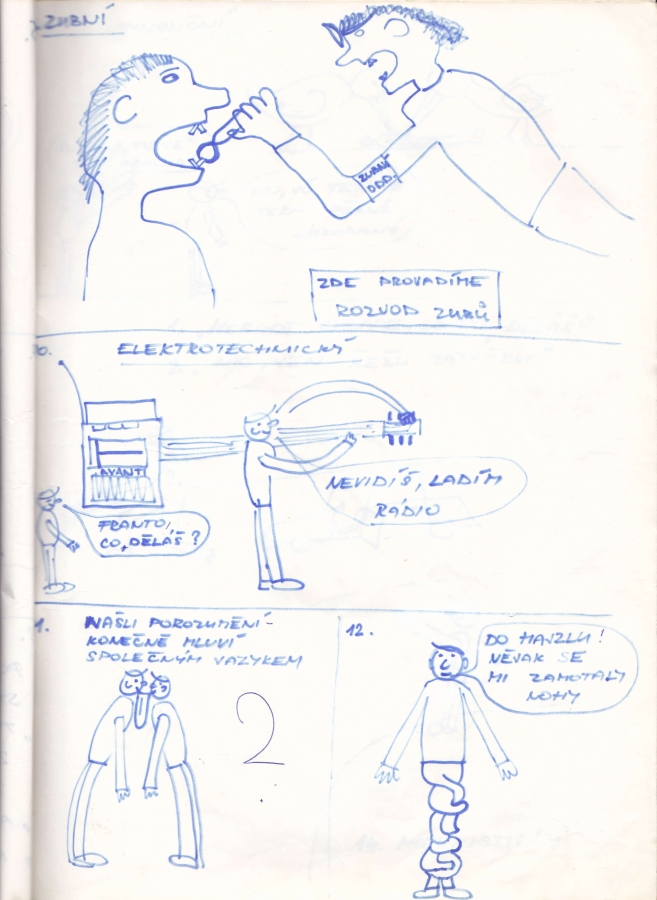 ZUBNÍ
ZUBNÍ
ODD.
ZDE PROVADÍME
ROZVOD ZUBŮ
0.
ELEKTROTECHNICKÝ
AVANTI
NEVIDÍŠ, LADÍM
RÁDIO
FRANTO,
CO, DĚLÁŠ?
1.
NAŠLI POROZUMĚNÍ-
KONEČNĚ MLUVÍ
SPOLEČNÝM JAZYKEM
2
12.
DO HAJZLU!
NĚVAK SE
MI ZAMOTALY
NOHY